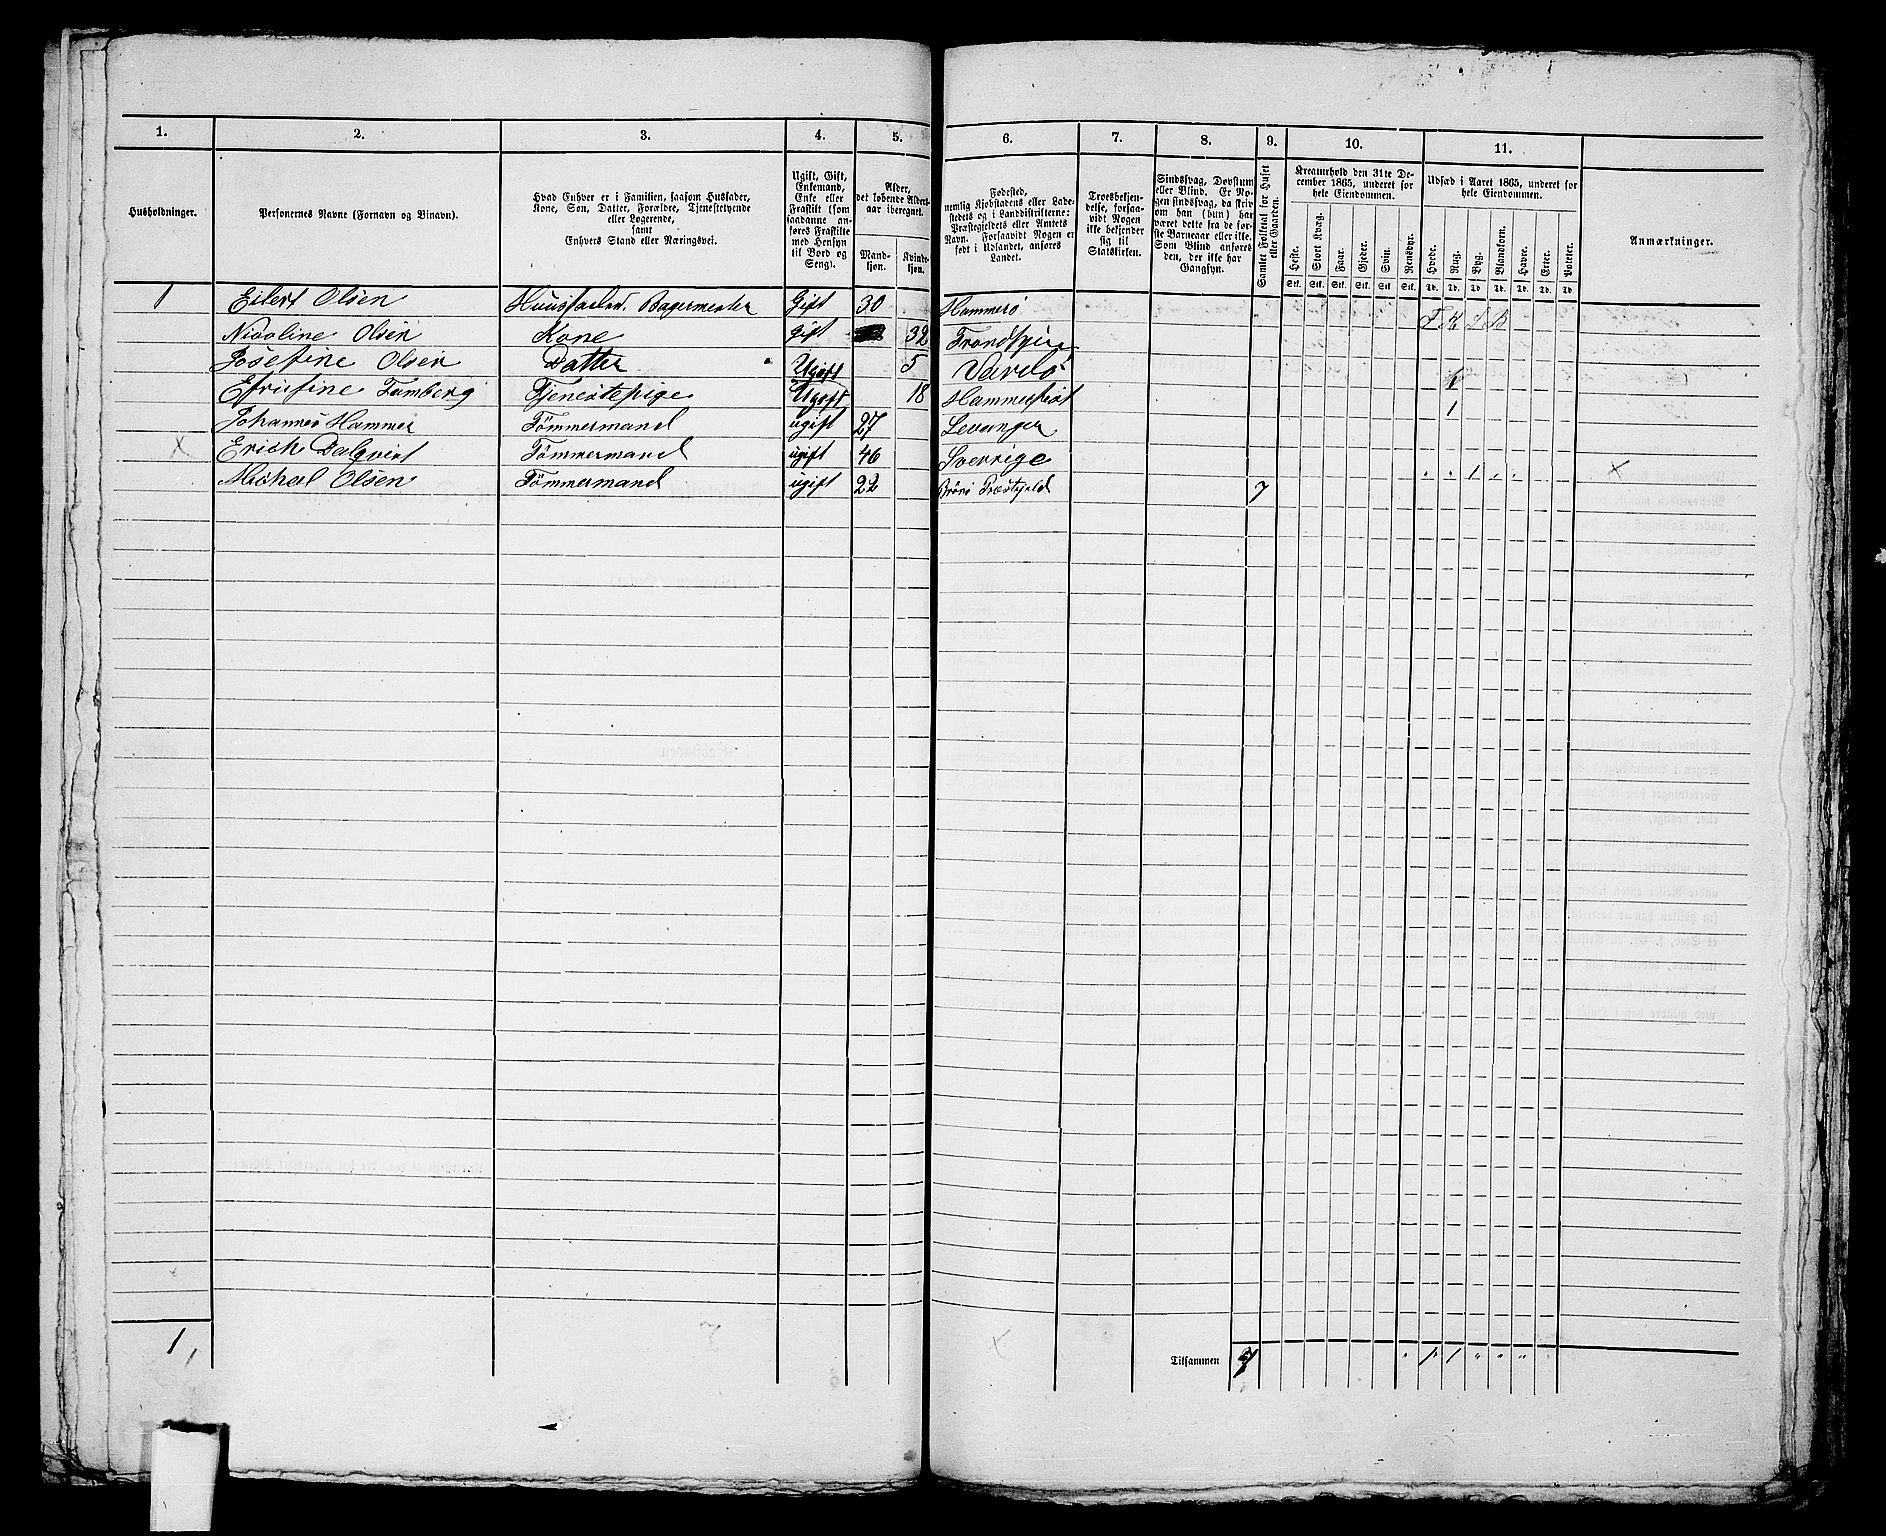 1. 2. 3. 4. 5. 6. 7. 8. 9. 10. 11.
Husholdninger.
Personernes Navne (Fornavn og Vinavn).
Hvad Enhver er i Familien, saasom Husfader,
Kone, Søn, Datter, Forældre, Tjenestetyende
eller Logerende,
samt
Enhvers Stand eller Næringsvei.
Ugift, Gift,
Enkemand,
Enke eller
Fraskilt (som
saadanne anføres Fraskilte
med Hensyn
til Bord og
Seng).
Alder,
det løbende Alders-
aar iberegnet.
Mand-
kjøn.
Kvinde-
kjøn.
Fødested,
nemlig Kjøbstadens eller Lade-
stedets og i Landdistrikterne:
Præstegjeldets eller Amtets
Navn. Forsaavidt Nogen er
født i Udlandet, anføres
Landet.
Troesbekjen-
delse, forsaa-
vidt Nogen
ikke bekjender
sig til
Statskirken.
Sindssvag, Døvstum
eller Blind. Er No-
gen sindssvag, da skriv
om han (hun) har
været dette fra de før-
ste Barneaar eller ikke.
Som Blind anføres
den, der ikke har
Gangsyn.
Samlet Folketal for Huset
eller Gaarden.
Kreaturhold den 31te De-
cember 1865, underet for
hele Eiendommen.
Heste. Stort Kvæg. Faar. Gjeder. Svin. Rensdyr.
Stk. Stk. Stk. Stk. Stk. Stk.
Udsæd i Aaret 1865, underet for
hele Eiendommen.
Hvede. Rug. Byg. Blandkorn. Havre. Erter. Poteter.
Td. Td. Td. Td. Td. Td. Td.
Anmærkninger.
1 Eilert Olsen Huusfader. Bagermester Gift 30 Hammerø
Nicoline Olsen Kone gift 32 Trondhjem
Josefine Olsen Datter Ugift 5 Vardø
Efrifine Tomberg Tjenestepige Ugift 18 Hammerfest
Johannes Hammer Tømmermand ugift 27 Levanger
Erich Dalqvist Tømmermand ugift 46 Sverrige
Michael Olsen Tømmermand ugift 22 Brønø Præstegjeld 7
1
Tilsammen 7 1 1